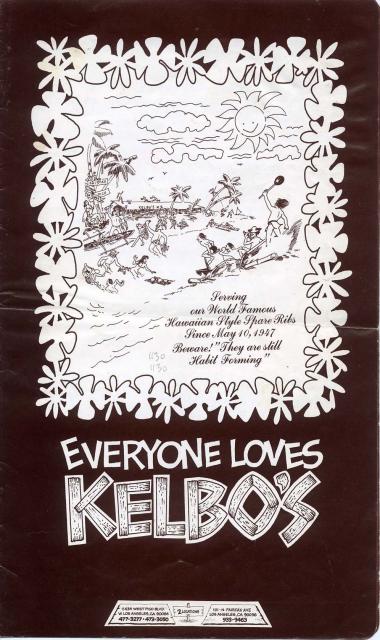 Serving
our World Famous
Hawaiian Style Spare Ribs
Since May 10, 1947
Beware! "They are still
Habit Forming"
1130
1130
EVERYONE LOVES
KELBO'S
WEST PICO BLVD.
W. LOS ANGELES, CA. 90064
477-3277 · 473-3090
2 LOCATIONS
101 N. FAIRFAX AVE.
LOS ANGELES, CA. 90036
935-9463